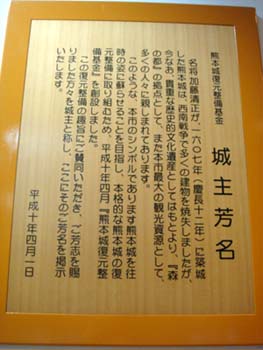 熊本城復元整備基金
城主芳名
名将加藤清正が、一六〇七年(慶長十二年)に築城
した熊本城は、西南戦争で多くの建物を焼失しましたが、
今なお、貴重な歴史的文化遺産としてはもとより、『森
の都』の拠点として、また本市最大の観光資源として、
多くの人々に親しまれております。
このような、本市のシンボルであります熊本城を往
時の姿に蘇らせることを目指し、本格的な熊本城の復
元整備に取り組むため、平成十年四月『熊本城復元整
備基金』を創設しました。
この復元整備の趣旨にご賛同いただき、ご芳志を賜
りました方々を城主と称し、ここにそのご芳名を掲示
いたします。
平成十年四月一日